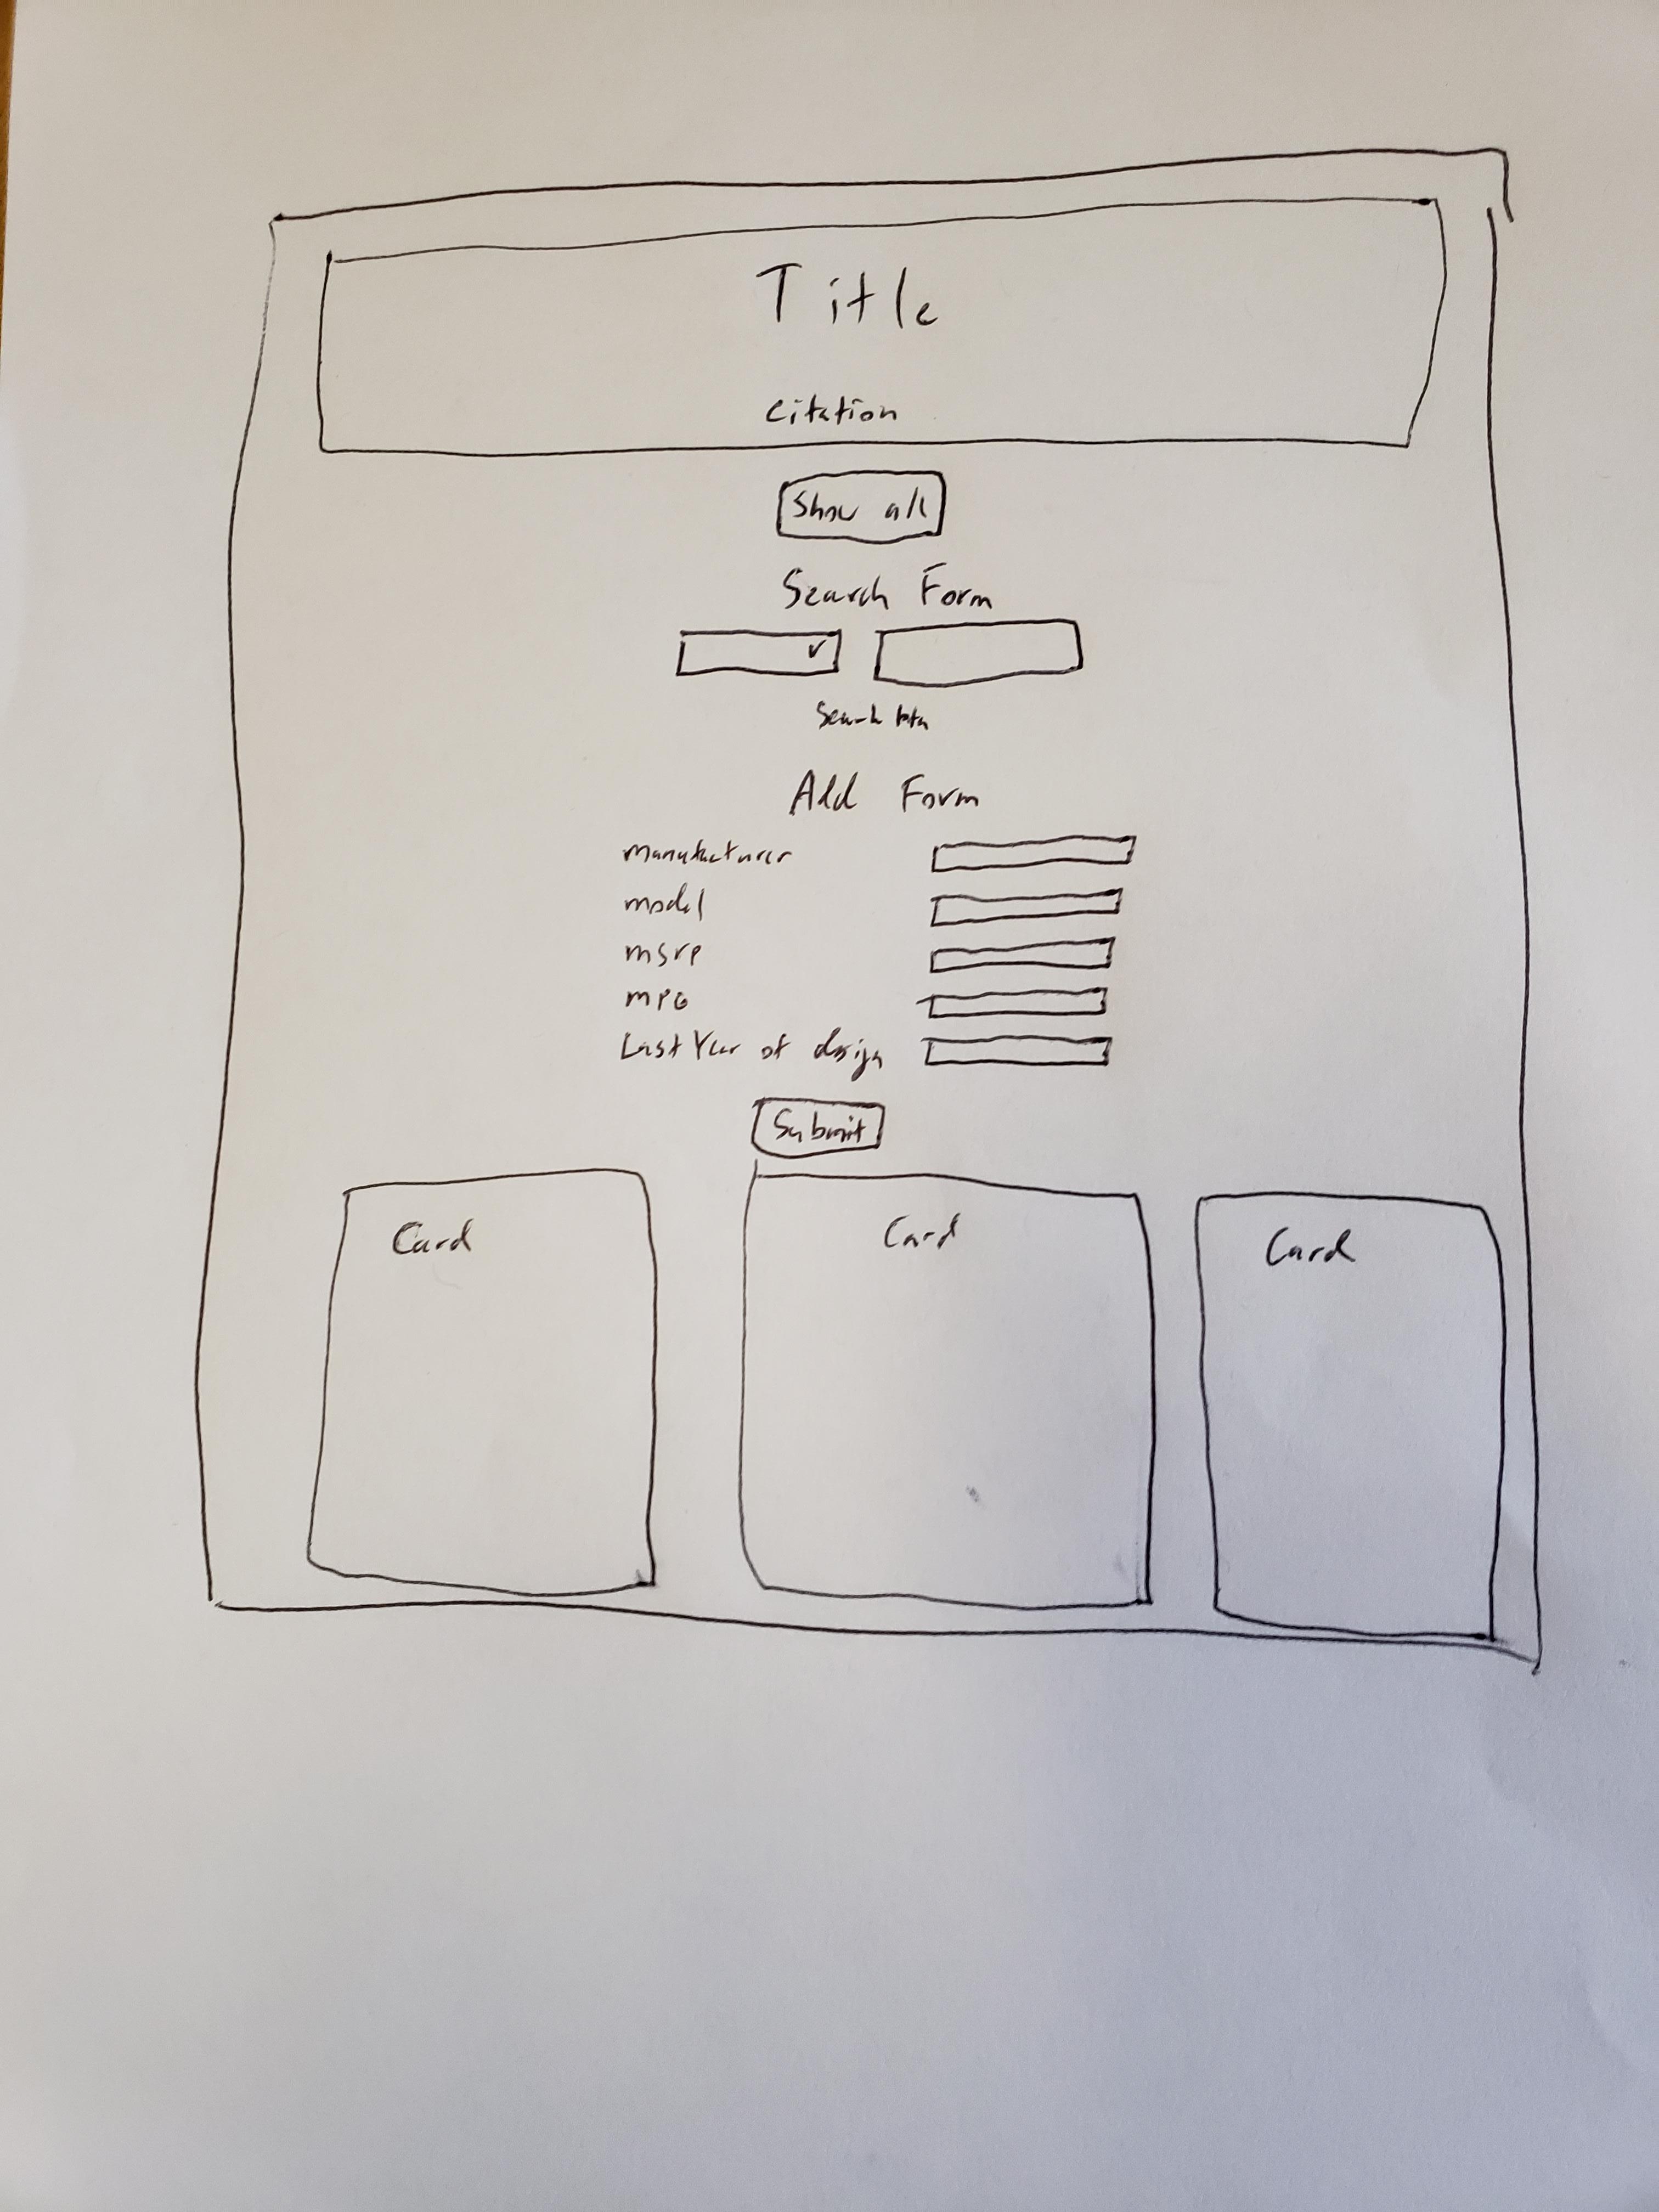 Title
Citation
Show all
Search Form
Search btn
Add Form
manufacturer
model
msrp
MPG
Last Year of design
Submit
Card Card Card